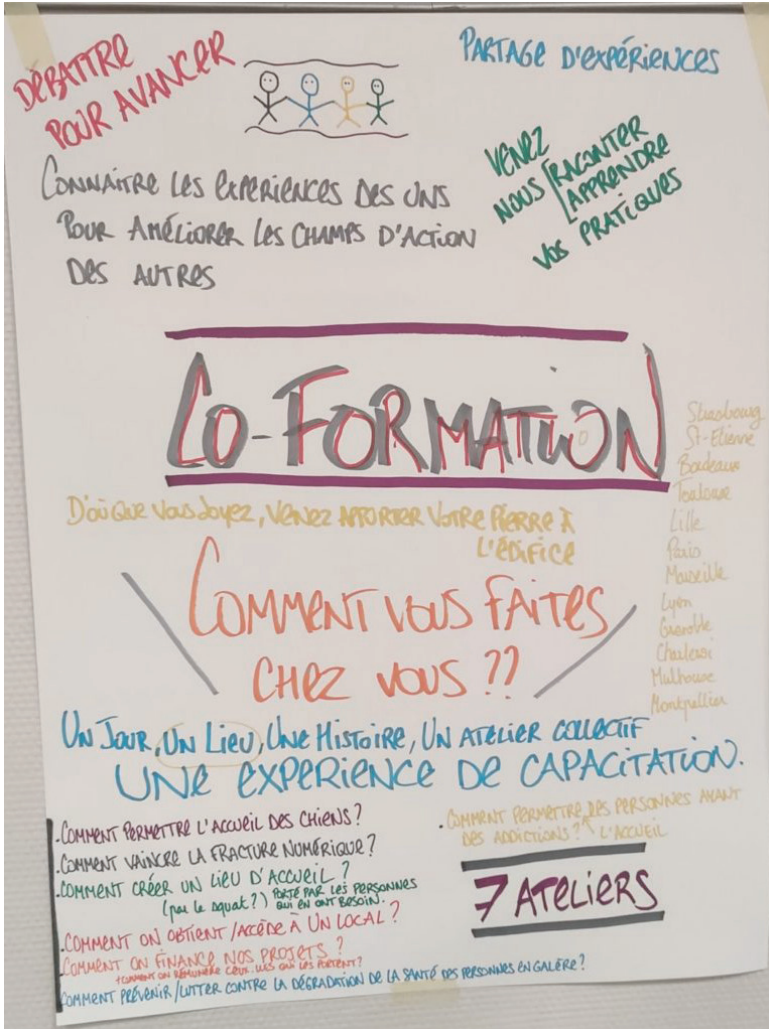 DÉBATTRE
POUR AVANCER
PARTAGE D'EXPÉRIENCES
CONNAITRE LES EXPERIENCES DES UNS
POUR AMÉLIORER LES CHAMPS D'ACTION
DES AUTRES
VENEZ
NOUS RACONTER
APPRENDRE
VOS PRATIQUES
CO-FORMATION
Strasbourg
St-Etienne
Bordeaux
Toulouse
Lille
Paris
Marseille
Lyon
Grenoble
Charleroi
Mulhouse
Montpellier
D'OÙ QUE VOUS SOYEZ, VENEZ APPORTER VOTRE PIERRE À
L'ÉDIFICE
COMMENT VOUS FAITES
CHEZ VOUS ??
UN JOUR, UN LIEU, UNE HISTOIRE, UN ATELIER COLLECTIF
UNE EXPERIENCE DE CAPACITATION.
. COMMENT PERMETTRE L'ACCUEIL DES CHIENS ?
. COMMENT VAINCRE LA FRACTURE NUMÉRIQUE ?
. COMMENT CRÉER UN LIEU D'ACCUEIL ?
(par le squat ?) PORTÉ PAR LES PERSONNES
QUI EN ONT BESOIN.
. COMMENT ON OBTIENT / ACCÈDE À UN LOCAL ?
. COMMENT ON FINANCE NOS PROJETS ?
+ COMMENT ON RÉMUNÈRE CEUX·LLES QUI LES PORTENT ?
COMMENT PRÉVENIR / LUTTER CONTRE LA DÉGRADATION DE LA SANTÉ DES PERSONNES EN GALÈRE ?
. COMMENT PERMETTRE DES PERSONNES AYANT
DES ADDICTIONS ? L'ACCUEIL
7 ATELIERS